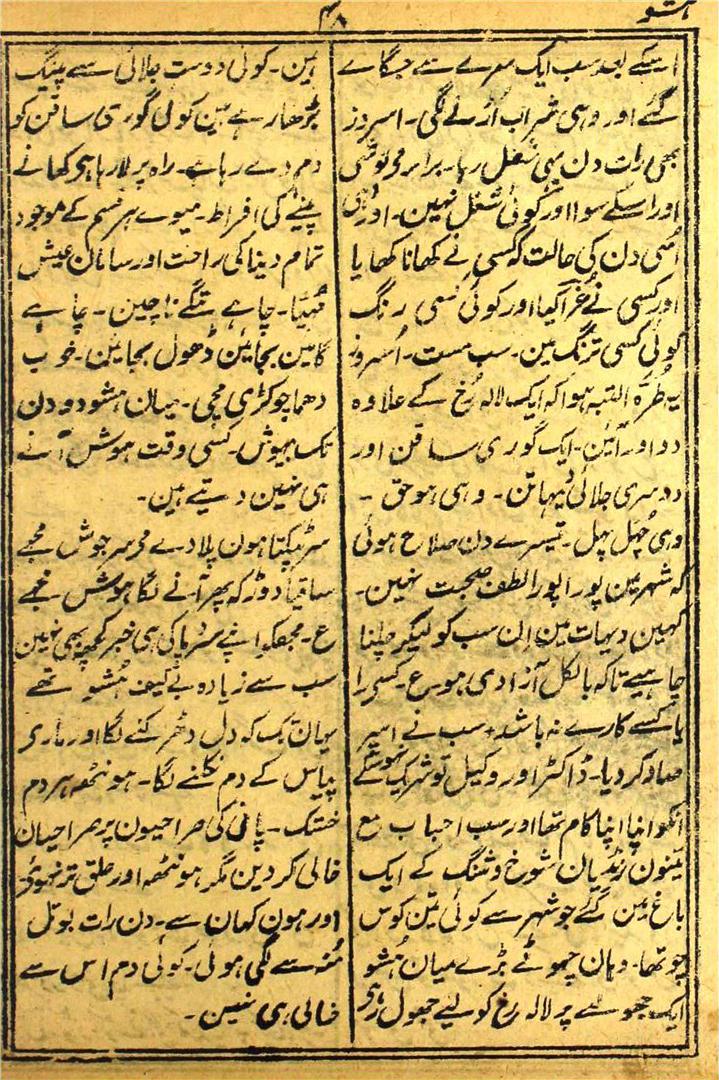 ہشو
۴۸
اسکے بعد سب ایک سرے سے جگائے
گئے اور وہی شراب اُڑنے لگی۔ اسروز
بھی رات دن یہی شغل رہا۔ برابر مے نوشی
اور اسکے سوا اور کوئی شغل نہین۔ اور وہی
اُسی دن کی حالت کہ کسی نے کھانا کھایا
اور کسی نے غرا گیا اور کوئی کسی رنگ
کوئی کسی ترنگ مین۔ سب مست۔ اُسروز
یہ طُرّہ البتہ ہوا کہ ایک لالہ رُخ کے علاوہ
دو اور آئین۔ ایک گوری ساقن اور
دوسری جلائی دیہاتن۔ وہی ہوحق ۔
وہی چہل پہل۔ تیسرے دن صلاح ہوئی
کہ شہر مین پورا پورا لطف صحبت نہین۔
کہین دیہات مین اِن سب کو لیکر چلنا
چاہیے تاکہ بالکل آزادی ہو۔ ع۔ کسی را
با کسے کارے نہ باشد، سب نے اسپر
صاد کر دیا۔ ڈاکٹر اور وکیل تو شریک نہوسکے
انکو اپنا اپنا کام تھا اور سب احباب مع
تینون رنڈیان شوخ و شنگ کے ایک
باغ مین گئے جو شہر سے کوئی تین کوس
ہوتھا۔ وہان چھوٹے بڑے میان ہُشو
ایک جھولے پر لالہ رخ کو لیے جھول رہے
ہین۔ کوئی دوست جلائی سے پینگ
بڑھا رہے ہین کوئی گوری ساقن کو
دم دے رہا ہے۔ راہ پر لا رہا ہی کھانے
پینے کی افراط۔ میوے ہر قسم کے موجود
تمام دنیا کی راحت اور سامان عیش
مُہیّا۔ چاہے تنگے ناچین۔ چاہے
گائین بجائین ڈھول بجائین۔ خوب
دھما چوکڑی مچی۔ میان ہشو دو دن
تک بیہوش۔ کسی وقت ہوش آنے
ہی نہین دیتے ہین۔
سر پٹکتا ہون پلا دے مے سرجوش مجے
ساقیا دوڑ کہ پھر آنے لگا ہوش مجے
ع۔ مجھکو اپنے سر و پا کی ہی خبر کچھ بھی نہین
سب سے زیادہ بے کیف ہُشو تھے
یہان تک کہ دل دھڑکنے لگا اور مارے
پیاس کے دم نکلنے لگا۔ ہونٹھ ہر دم
خشک۔ پانی کی صراحیون پر صراحیان
خالی کر دین مگر ہونٹھ اور حلق تر نہوئے
اور ہون کہان سے۔ دن رات بوتل
مُنہ سے لگی ہوئی۔ کوئی دم اس سے
خالی ہی نہین۔